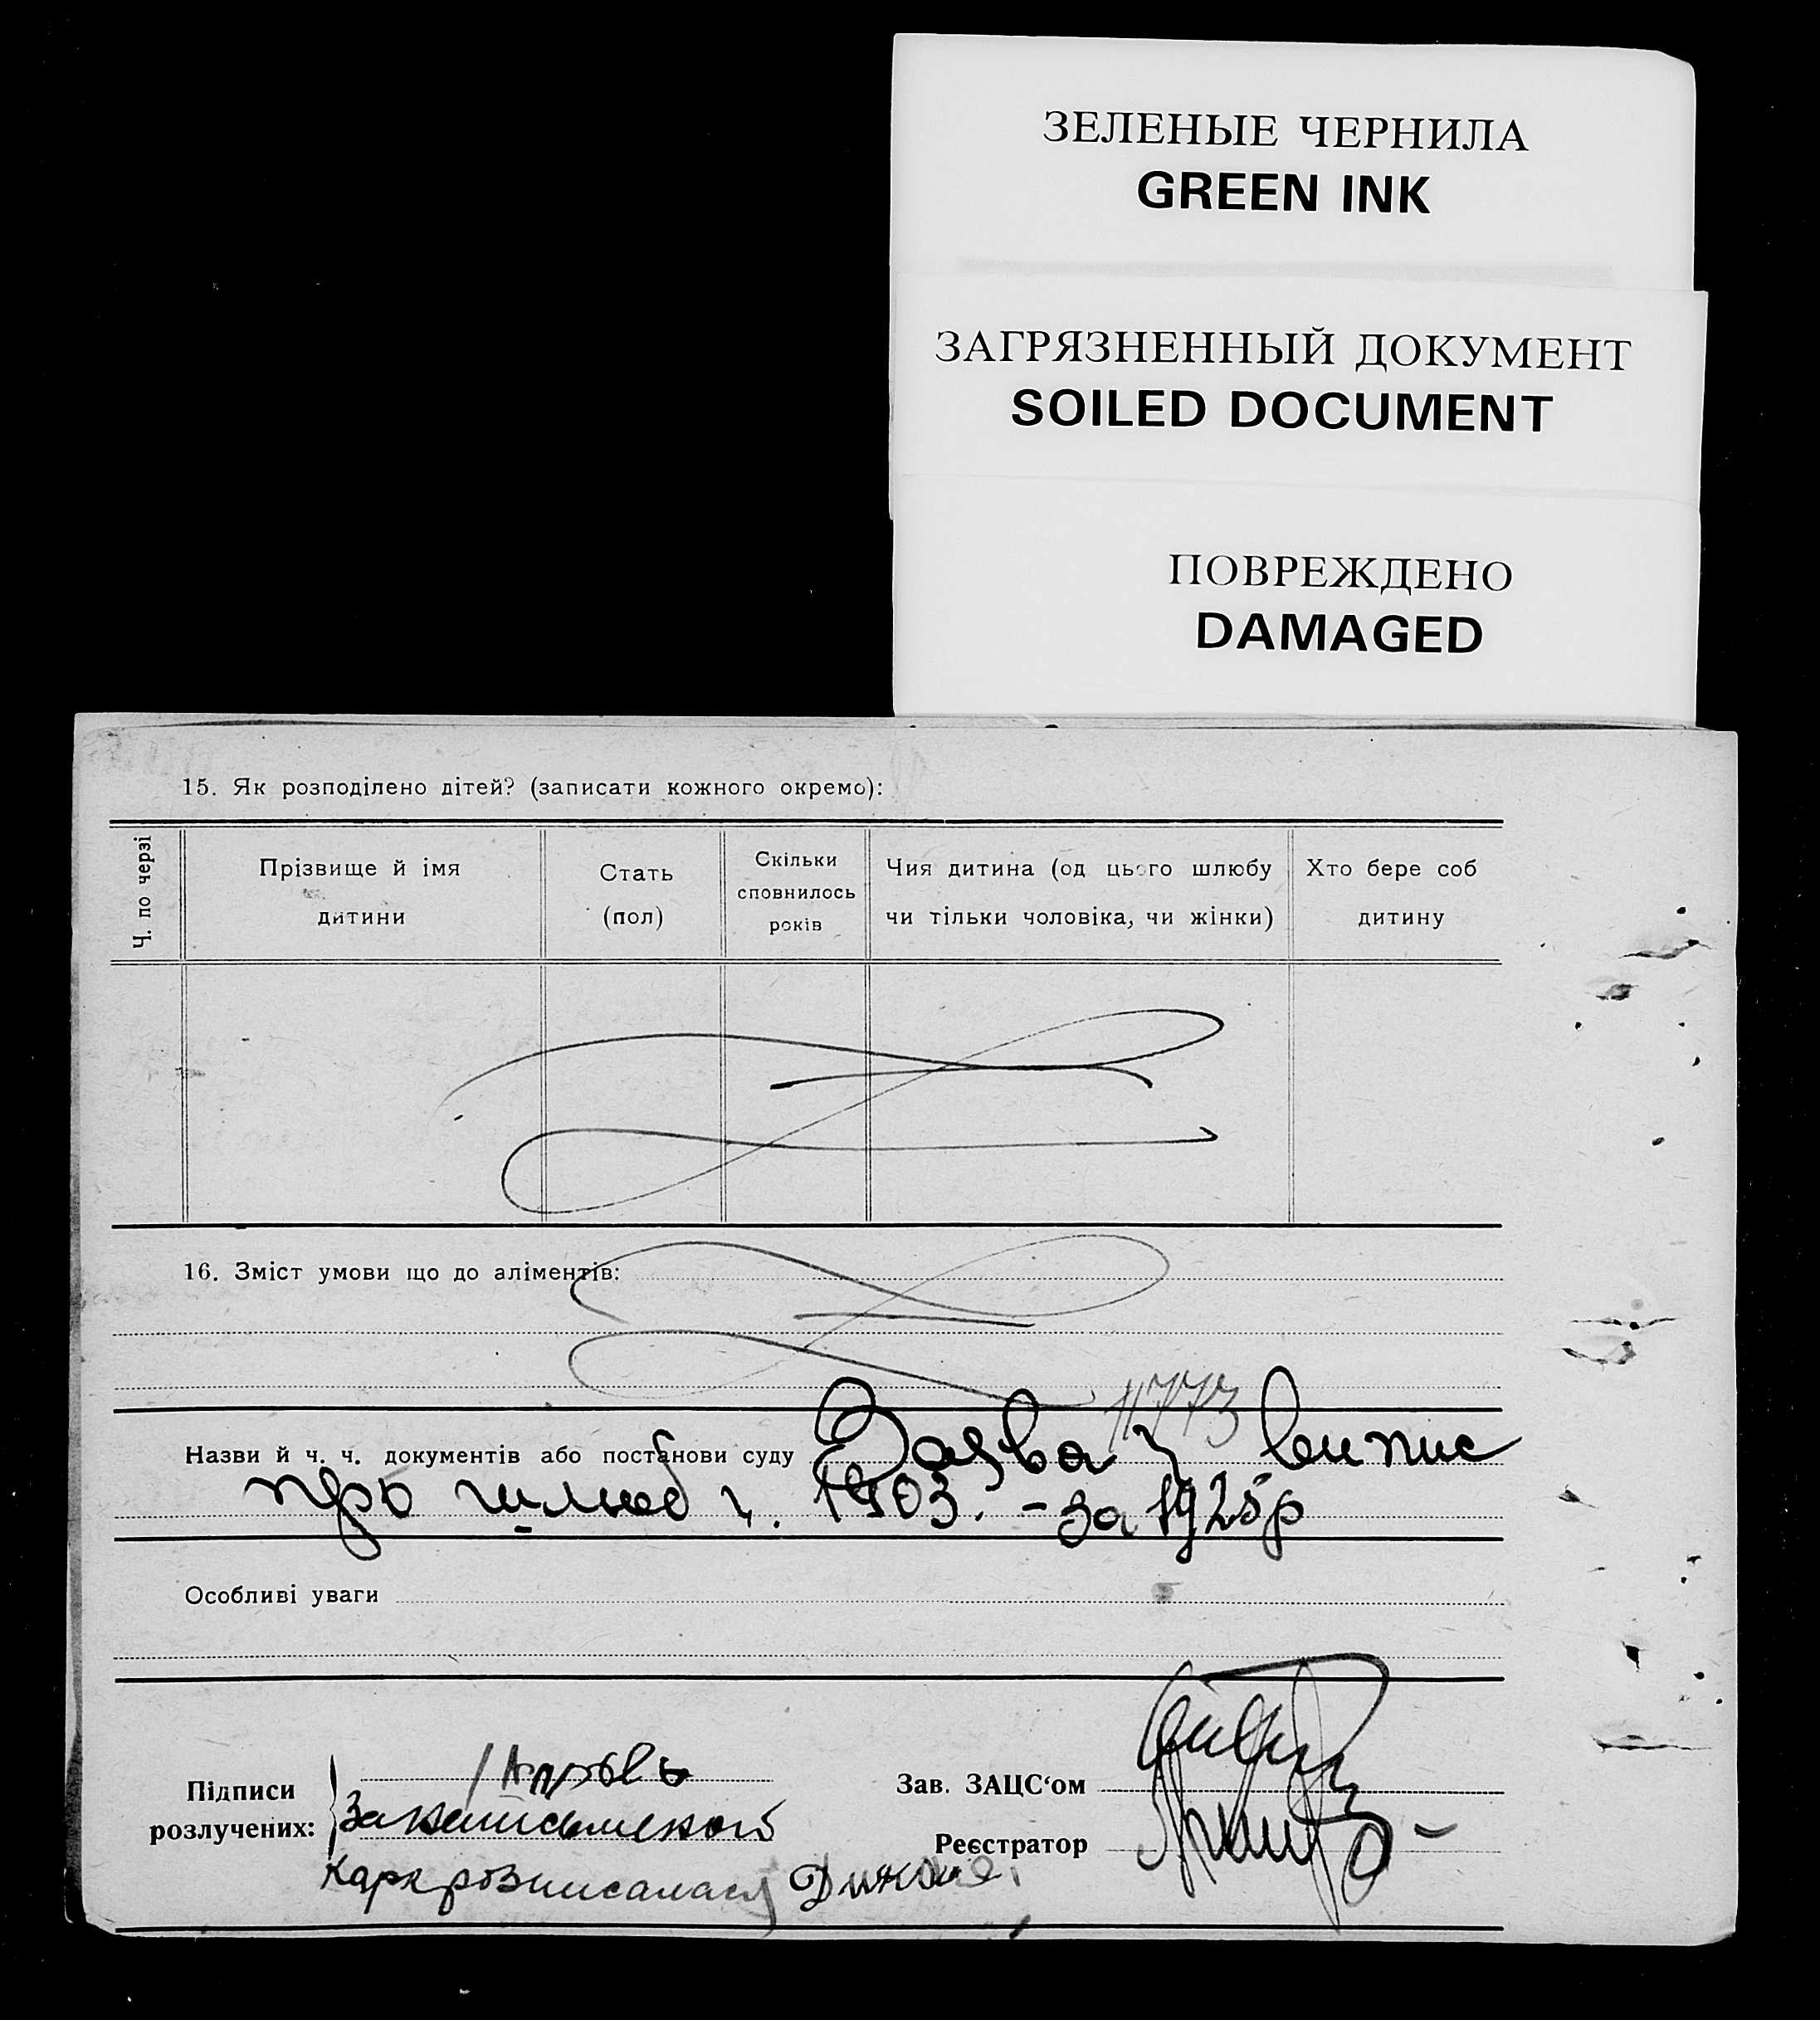 ЗЕЛЕНЫЕ ЧЕРНИЛА
GREEN INK
ЗАГРЯЗНЕННЫЙ ДОКУМЕНТ
SOILED DOCUMENT
ПОВРЕЖДЕНО
DAMAGED
15. Як розподілено дітей? (записати кожного окремо):
Ч. по черзі
Прізвище й імя
дитини
Стать
(пол)
Скільки
сповнилось
років
Чия дитина (од цього шлюбу
чи тільки чоловіка, чи жінки)
Хто бере соб
дитину
16. Зміст умови що до аліментів:
11773
Назви й ч. ч. документів або постанови суду Заява й випис
про шлюб ч. 1903. - за 1925р
Особливі уваги
Підписи
розлучених:
За неписьменной
розписалася
Зав. ЗАЦС‘ом
Реєстратор